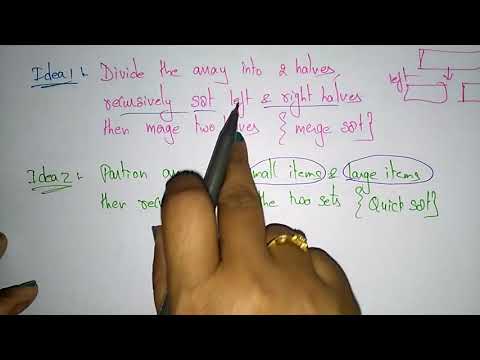 Idea 1:- Divide the array into 2 halves,
recursively sort left & right halves
then merge two {merge sort}
left
Idea 2:- small items & large items
then the two sets {Quick sort}